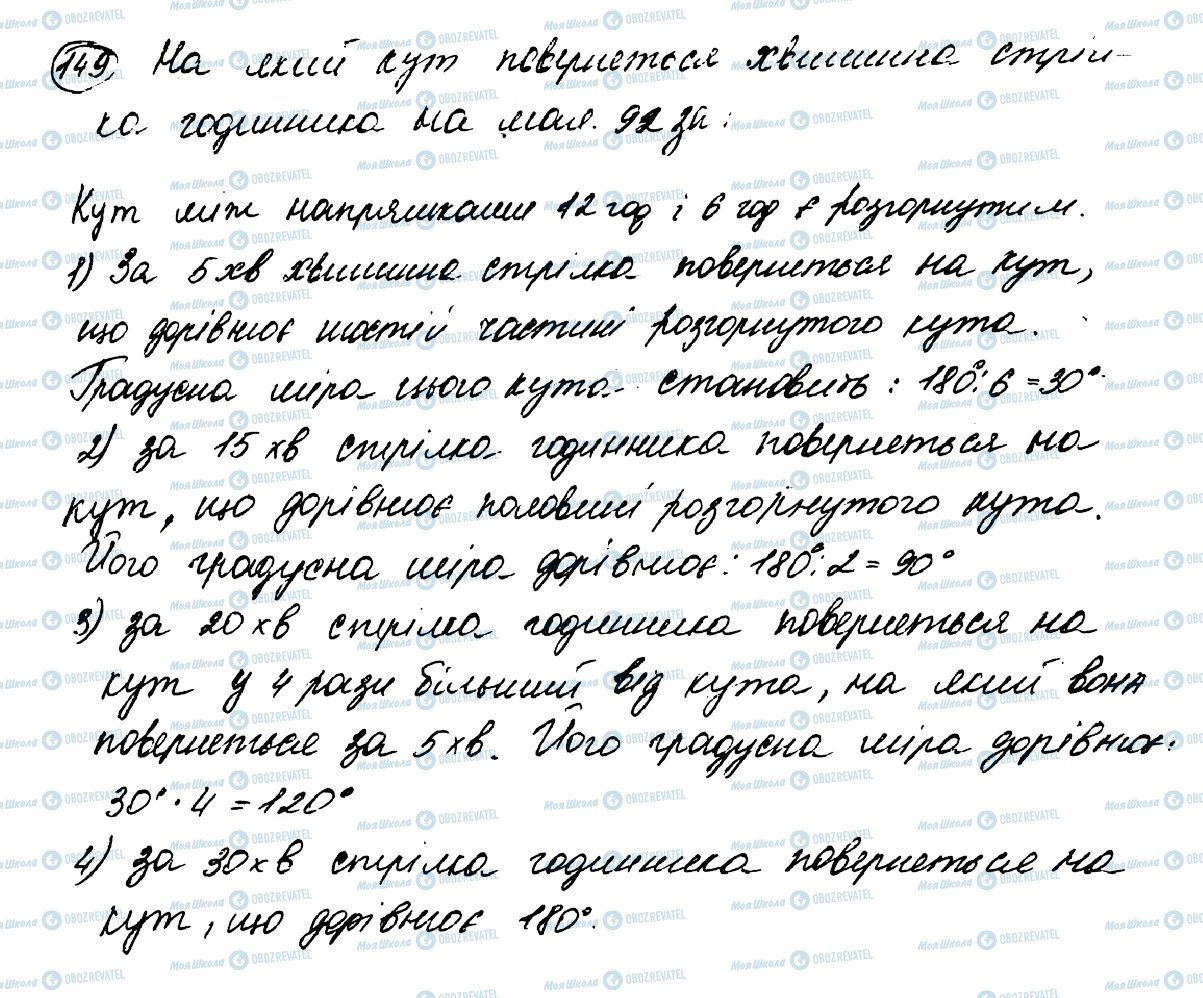 149. На який кут повернеться хвилинна стріл-
ка годинника на мал. 92 за:
Кут між напрямками 12 год і 6 год є розгорнутим.
1) За 5 хв хвилинна стрілка повернеться на кут,
що дорівнює шостій частині розгорнутого кута.
Градусна міра цього кута становить: 180°:6=30°.
2) за 15 хв стрілка годинника повернеться на
кут, що дорівнює половині розгорнутого кута.
Його градусна міра дорівнює: 180°:2=90°
3) за 20 хв стрілка годинника повернеться на
кут у 4 рази більший від кута, на який вона
повернеться за 5 хв. Його градусна міра дорівнює:
30°·4=120°
4) за 30 хв стрілка годинника повернеться на
кут, що дорівнює 180°.